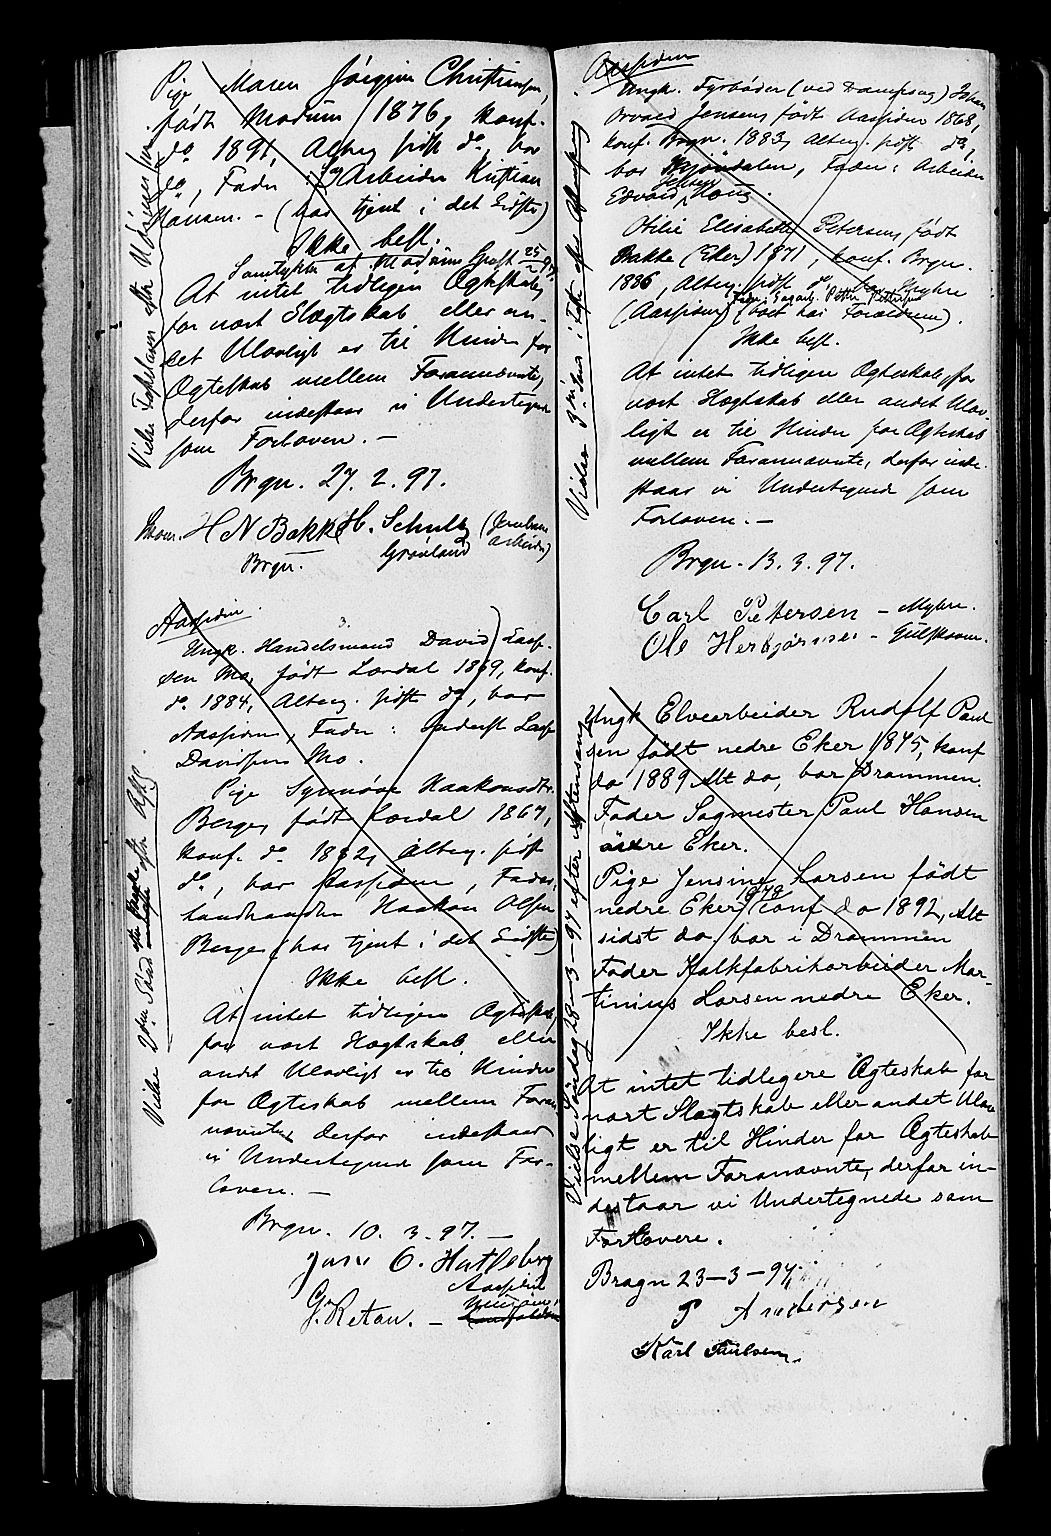 Pige Maren Jörgine Christensen,
født Modum 1876, konf.
do 1891, Alterg. sidst do, bor
do, Fader: Arbeider Kristian
Hansen. - (har tjent i det Sidste)
Ikke besl.
Samtykke af Modum Prest 25/2 97.
At intet tidligere Ægteskab,
for nært Slægtskab eller an-
det Ulovligt er til Hinder for
Ægteskab mellem Forannævnte,
derfor indestaar vi Undertegnede
som Forlovere. -
Brgn. 27. 2. 97.
H N Bakke H. Schultz (Jernbane
Brgn. Grønland arbeider)
Aassiden.
3.
Ungk. Handelsmand David Lass-
sen Mo, født Lærdal 1859, konf.
do 1884, Alterg. sidst do, bor
Aassiden, Fader: Inderst Lasse
Davidsen Mo.
Pige Synnøve Haakonsdtr.
Berge, født Lærdal 1867,
konf. do 1882, Alterg. sidst
do, bor Aassiden, Fader:
Landhandler Haakon Olsen
Berge (har tjent i det Sidste)
Ikke besl.
At intet tidligere Ægteskab,
for nært Slægtskab eller
andet Ulovligt er til Hinder
for Ægteskab mellem Foran-
nævnte, derfor indestaar
vi Undertegnede som For-
lovere. -
Brgn. 10. 3. 97. -
O. Hatleberg
Aassiden
G. Retan. -
Aassiden
Ungk. Fyrbøder (ved Dampsag) Johan
Orvald Jensen født Aassiden 1868,
konf. Brgn. 1883, Alterg. sidst do,
bor Mjøndalen, Fader: Arbeider
Edvard Jensen
Otilie Elisabeth Petersen født
Bakke (Eker) 1871, konf. Brgn.
1886, Alterg. sidst do, bor Myhre
Fader: Sagarb. Petter Pettersen
(Aassiden) (boet hos Forældrene).
Ikke besl.
At intet tidligere Ægteskab, for
nært Slægtskab eller andet Ulov-
ligt er til Hinder for Ægteskab
mellem Forannævnte, derfor inde-
staar vi Undertegnede som
Forlovere. -
Brgn. 13. 3. 97.
Carl Petersen - Myhre.
Ole Herbjørnsen - Gulskoven.
Ungk Elvearbeider Rudolf Paul
sen født nedre Eker 1875, konf
do 1889 Alt do, bor Drammen.
Fader Sagmester Paul Hansen
nedre Eker.
Pige Jensine Larsen født
nedre Eker 1878 konf do 1892, Alt
sidst do, bor i Drammen
Fader Kalkfabrikarbeider Mar-
tinius Larsen nedre Eker.
Ikke besl.
At intet tidlegere Ægteskab for
nært Slægtskab eller andet Ulov
ligt er til Hinder for Ægteskab
mellem Forannævnte, derfor in-
destaar vi Undertegnede som
Forlovere.
Bragn 23-3-97
P Andersen
Karl Paulsen.
Vielse Søndag 28-3-97 efter Aftensang